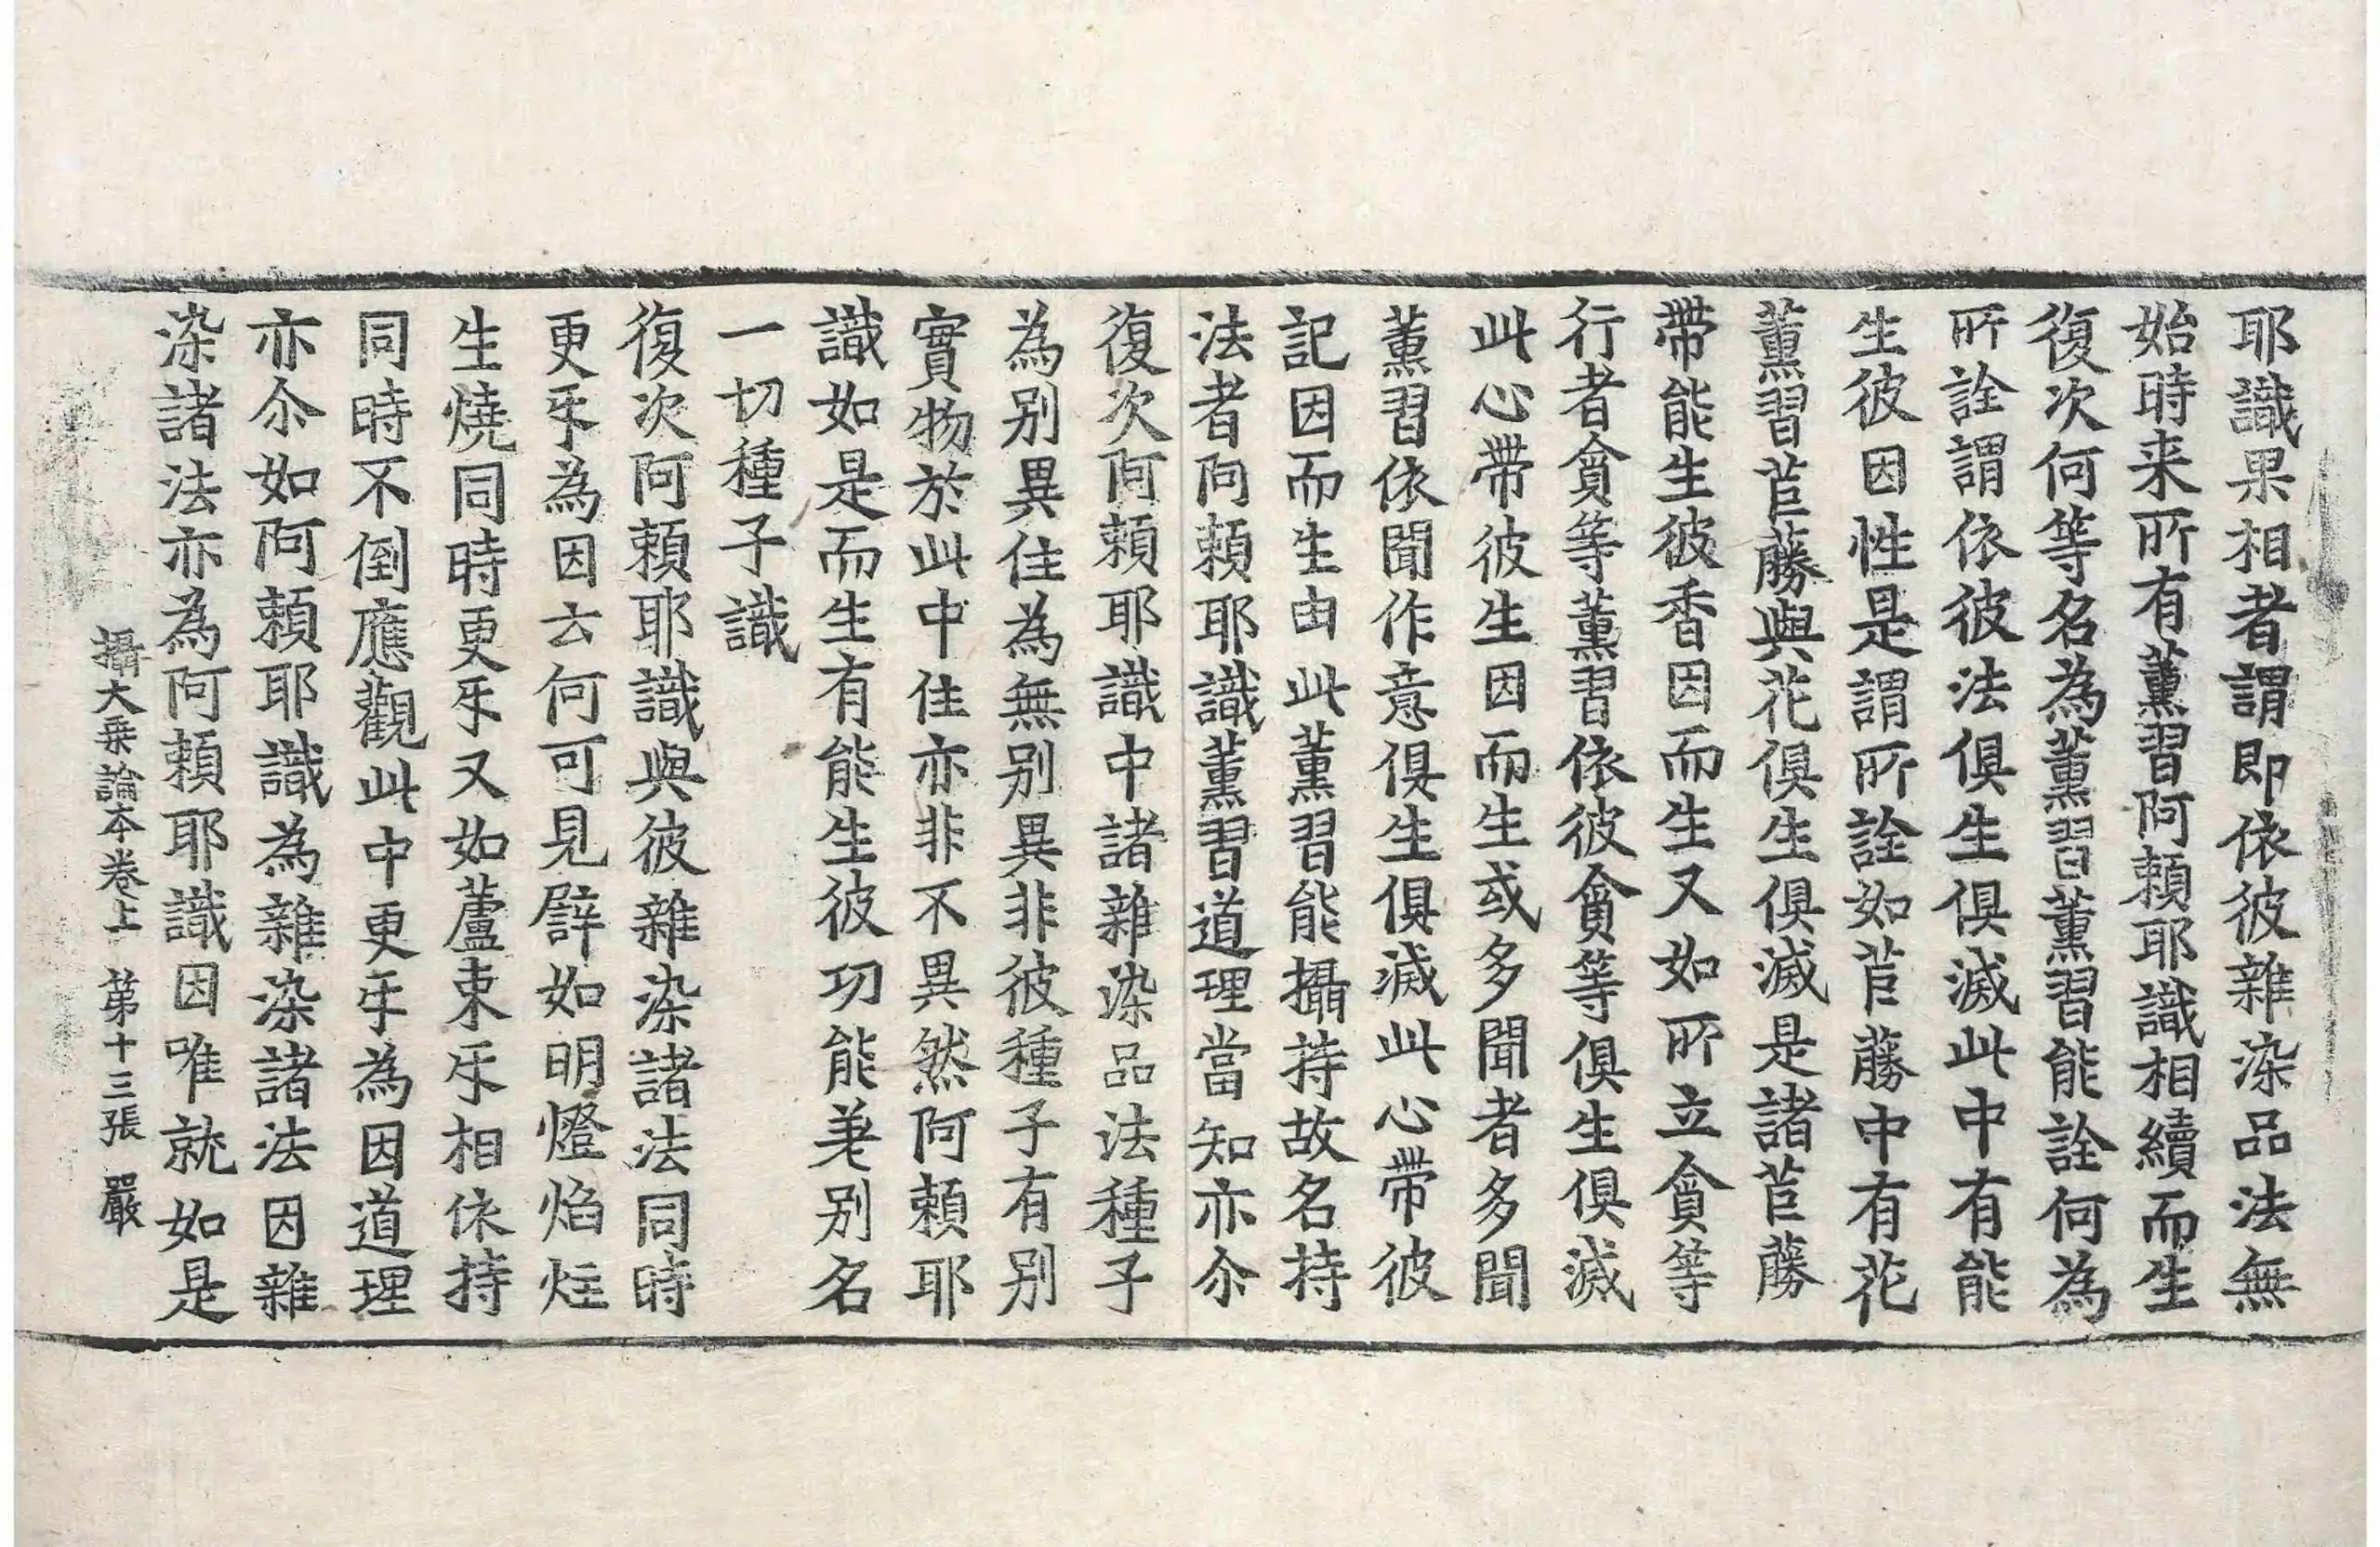 耶識果相者謂即依彼雜染品法無
始時来所有薰習阿頼耶識相續而生
復次何等名為薰習薰習能詮何為
所詮謂依彼法俱生俱滅此中有能
生彼因性是謂所詮如苣蕂中有花
薰習苣蕂與花俱生俱滅是諸苣蕂
帶能生彼香因而生又如所立貪等
行者貪等薰習依彼貪等俱生俱滅
此心帶彼生因而生或多聞者多聞
薰習依聞作意俱生俱滅此心帶彼
記因而生由此薰習能攝持故名持
法者阿頼耶識薰習道理當知亦尒
復次阿頼耶識中諸雜染品法種子
為別異住為無別異非彼種子有別
實物於此中住亦非不異然阿頼耶
識如是而生有能生彼功能差別名
一切種子識
復次阿頼耶識與彼雜染諸法同時
更㸦為因云何可見譬如明燈焰炷
生燒同時更㸦又如蘆束㸦相依持
同時不倒應觀此中更㸦為因道理
亦尒如阿頼耶識為雜染諸法因雜
染諸法亦為阿頼耶識因唯就如是
攝大乗論本卷上 第十三張 嚴